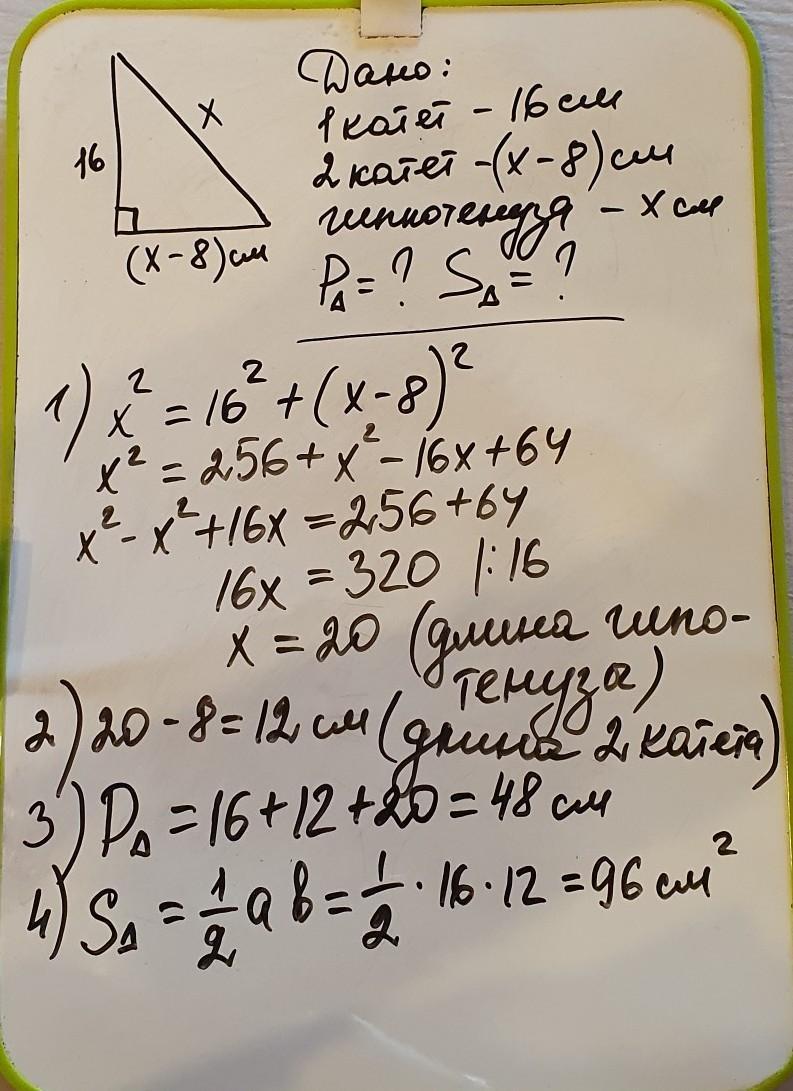 16
x
(x-8)см
Дано:
1 катет - 16 см
2 катет -(x-8) см
гипнотенуза - x см
P△ = ? S△ = ?
1) x² = 16² + (x-8)²
x² = 256 + x² - 16x + 64
x² - x² + 16x = 256 + 64
16x = 320 |:16
x = 20 (длина гипо-
тенузы)
2) 20 - 8 = 12 см (длина 2 катета)
3) P△ = 16 + 12 + 20 = 48 см
4) S△ = 1/2 a b = 1/2 · 16 · 12 = 96 см²